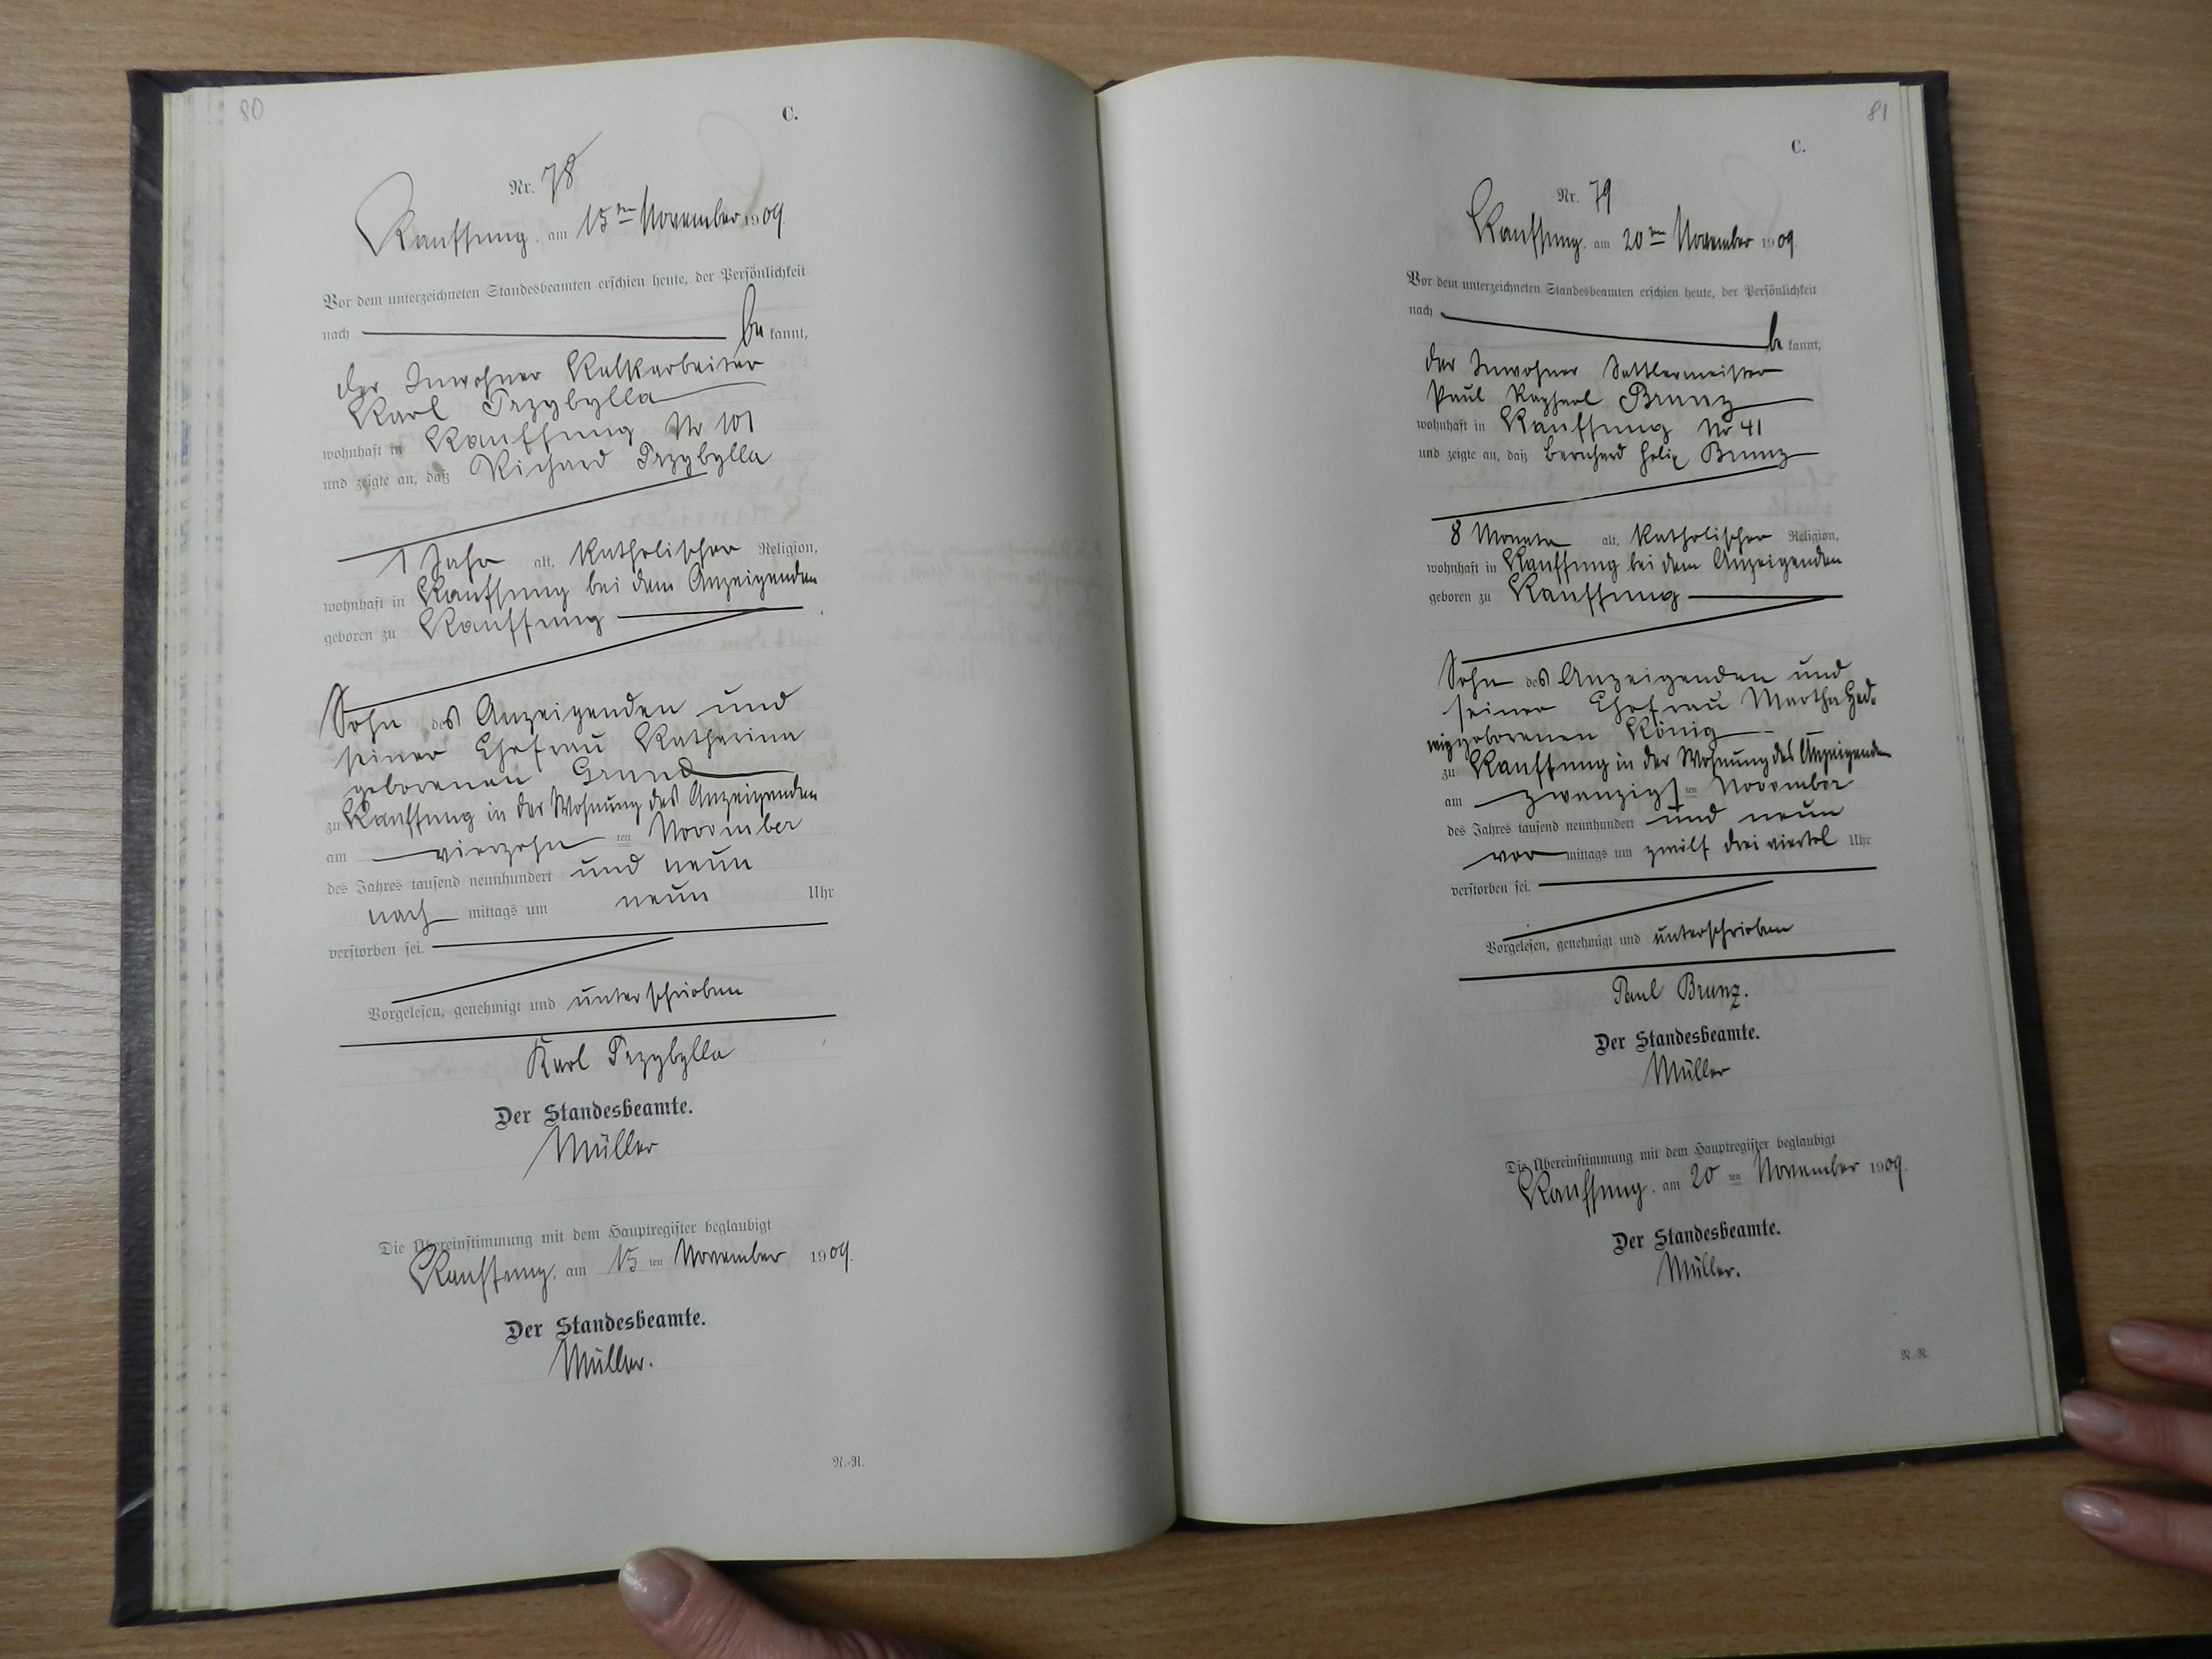 80
C.
Nr. 78
Kauffung, am 15ten November 1909.
Vor dem unterzeichneten Standesbeamten erschien heute, der Persönlichkeit
nach be kannt,
der Inwohner Kalkarbeiter
Karl Przybylla
wohnhaft in Kauffung Nr 101
und zeigte an, daß Richard Przybylla
1 Jahr alt, katholischer Religion,
wohnhaft in Kauffung bei dem Anzeigenden
geboren zu Kauffung
Sohn des Anzeigenden und
seiner Ehefrau Katharina
geborenen Grund
zu Kauffung in der Wohnung des Anzeigenden
am vierzehn ten November
des Jahres tausend neunhundert und neun
nach mittags um neun Uhr
verstorben sei.
Vorgelesen, genehmigt und unterschrieben
Karl Przybylla
Der Standesbeamte.
Müller
Die Übereinstimmung mit dem Hauptregister beglaubigt
Kauffung, am 15 ten November 1909.
Der Standesbeamte.
Müller.
N.-R.
81
C.
Nr. 79
Kauffung, am 20ten November 1909.
Vor dem unterzeichneten Standesbeamten erschien heute, der Persönlichkeit
nach be kannt,
der Inwohner Sattlermeister
Paul Raphael Brunz
wohnhaft in Kauffung Nr 41
und zeigte an, daß Bernhard Felix Brunz
8 Monate alt, katholischer Religion,
wohnhaft in Kauffung bei dem Anzeigenden
geboren zu Kauffung
Sohn des Anzeigenden und
seiner Ehefrau Martha Hed-
wig geborenen König
zu Kauffung in der Wohnung des Anzeigenden
am zwanzigsten November
des Jahres tausend neunhundert und neun
vor mittags um zwölf drei viertel Uhr
verstorben sei.
Vorgelesen, genehmigt und unterschrieben
Paul Brunz.
Der Standesbeamte.
Müller
Die Übereinstimmung mit dem Hauptregister beglaubigt
Kauffung, am 20 ten November 1909.
Der Standesbeamte.
Müller.
N.-R.